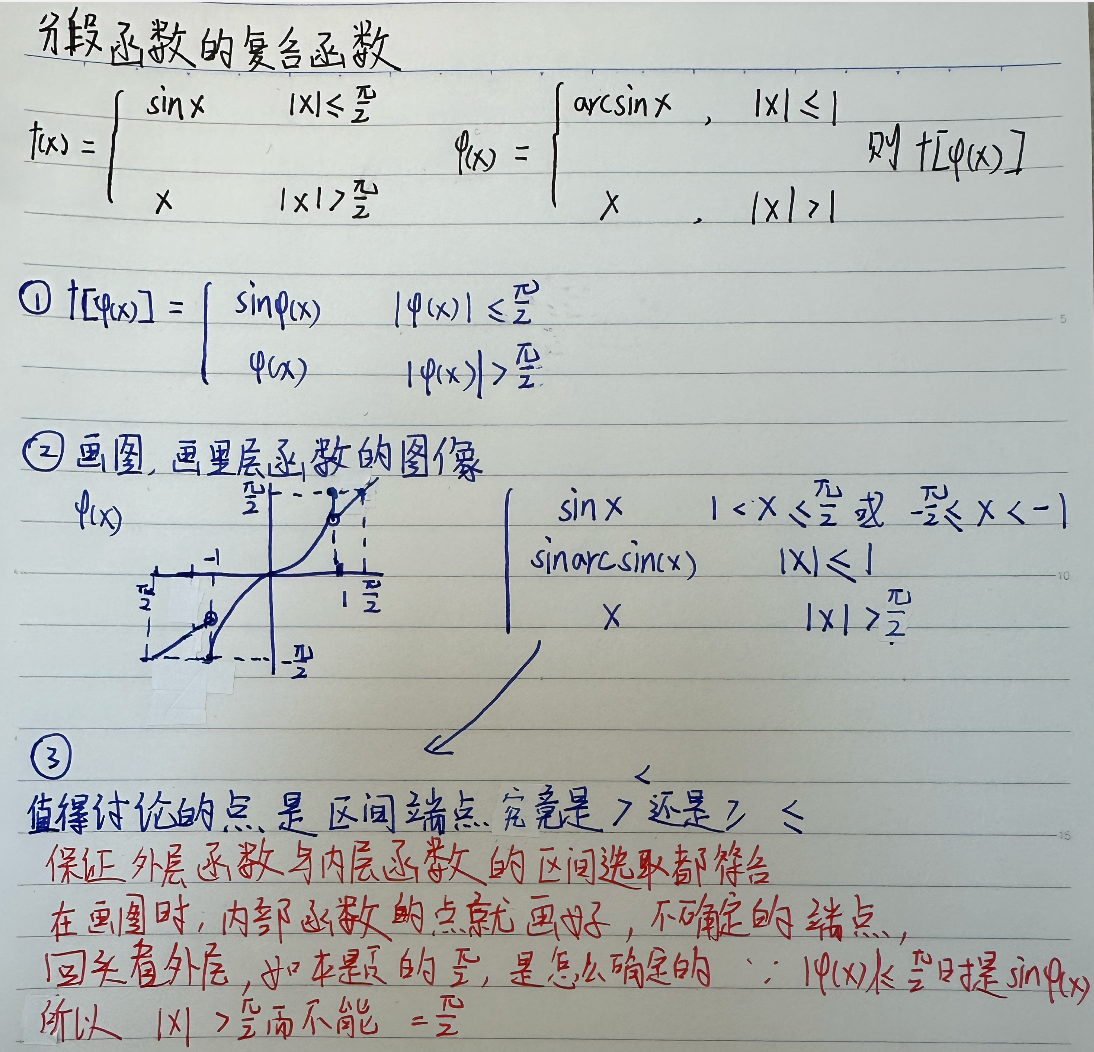 分段函数的复合函数
f(x) = { sinx |x|≤π/2
x |x|>π/2
φ(x) = { arcsinx , |x|≤1
x , |x|>1
则 f[φ(x)]
① f[φ(x)] = { sinφ(x) |φ(x)|≤π/2
φ(x) |φ(x)|>π/2
② 画图, 画里层函数的图像
φ(x)
π/2
-1
π/2
1
π/2
-π/2
sinx 1<x≤π/2 或 -π/2≤x<-1
sinarcsin(x) |x|≤1
x |x|>π/2
③
<
值得讨论的点是区间端点究竟是 > 还是 ≥ ≤
保证外层函数与内层函数的区间选取都符合
在画图时, 内部函数的点就画好, 不确定的端点,
回头看外层, 如本题的π/2, 是怎么确定的 ∵ |φ(x)|≤π/2时是sinφ(x)
所以 |x|>π/2而不能 =π/2
5
10
15